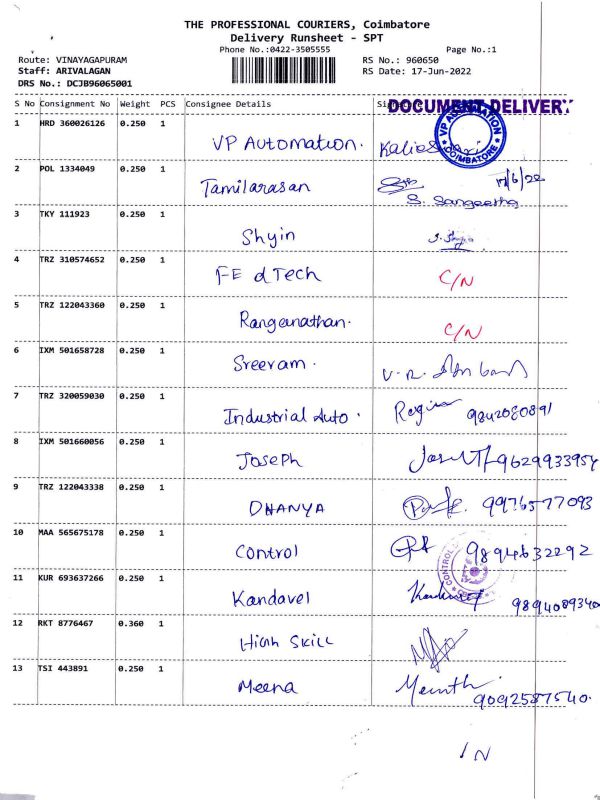 THE PROFESSIONAL COURIERS, Coimbatore
Delivery Runsheet - SPT
Phone No.:0422-3505555 Page No.:1
Route: VINAYAGAPURAM RS No.: 960650
Staff: ARIVALAGAN RS Date: 17-Jun-2022
DRS No.: DCJB96065001
S No Consignment No Weight PCS Consignee Details
DOCUMENT DELIVERY
1 HRD 360026126 0.250 1 VP Automation.
VP AUTOMATION COIMBATORE
2 POL 1334049 0.250 1 Tamilarasan 17/6/22
S. Sangeetha
3 TKY 111923 0.250 1 Shyin
4 TRZ 310574652 0.250 1 FE dTech C/N
5 TRZ 122043360 0.250 1 Ranganathan. C/N
6 IXM 501658728 0.250 1 Sreeram.
7 TRZ 320059030 0.250 1 Industrial Auto. 9842080891
8 IXM 501660056 0.250 1 Joseph 9629933954
9 TRZ 122043338 0.250 1 DHANYA 9976577093
10 MAA 565675178 0.250 1 Control 9894632292
CONTROL
11 KUR 693637266 0.250 1 Kandavel 9894089340
12 RKT 8776467 0.360 1 High Skill
13 TSI 443891 0.250 1 Meena 9092587540.